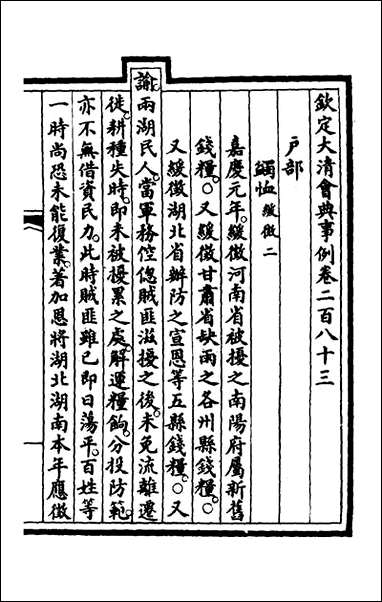 欽定大清會典事例卷二百八十三
户部
蠲恤緩徵二
嘉慶元年。緩徵河南省被擾之南陽府屬新舊
錢糧。○又緩徵甘肅省缺雨之各州縣錢糧。○
又緩徵湖北省辦防之宣恩等五縣錢糧。○又
諭。兩湖民人。當軍務倥傯賊匪滋擾之後。未免流離遷
徙。耕種失時。即未被擾累之處。解運糧餉。分投防範。
亦不無借資民力。此時賊匪雖已即日蕩平。百姓等
一時尚恐未能復業。著加恩將湖北湖南本年應徵